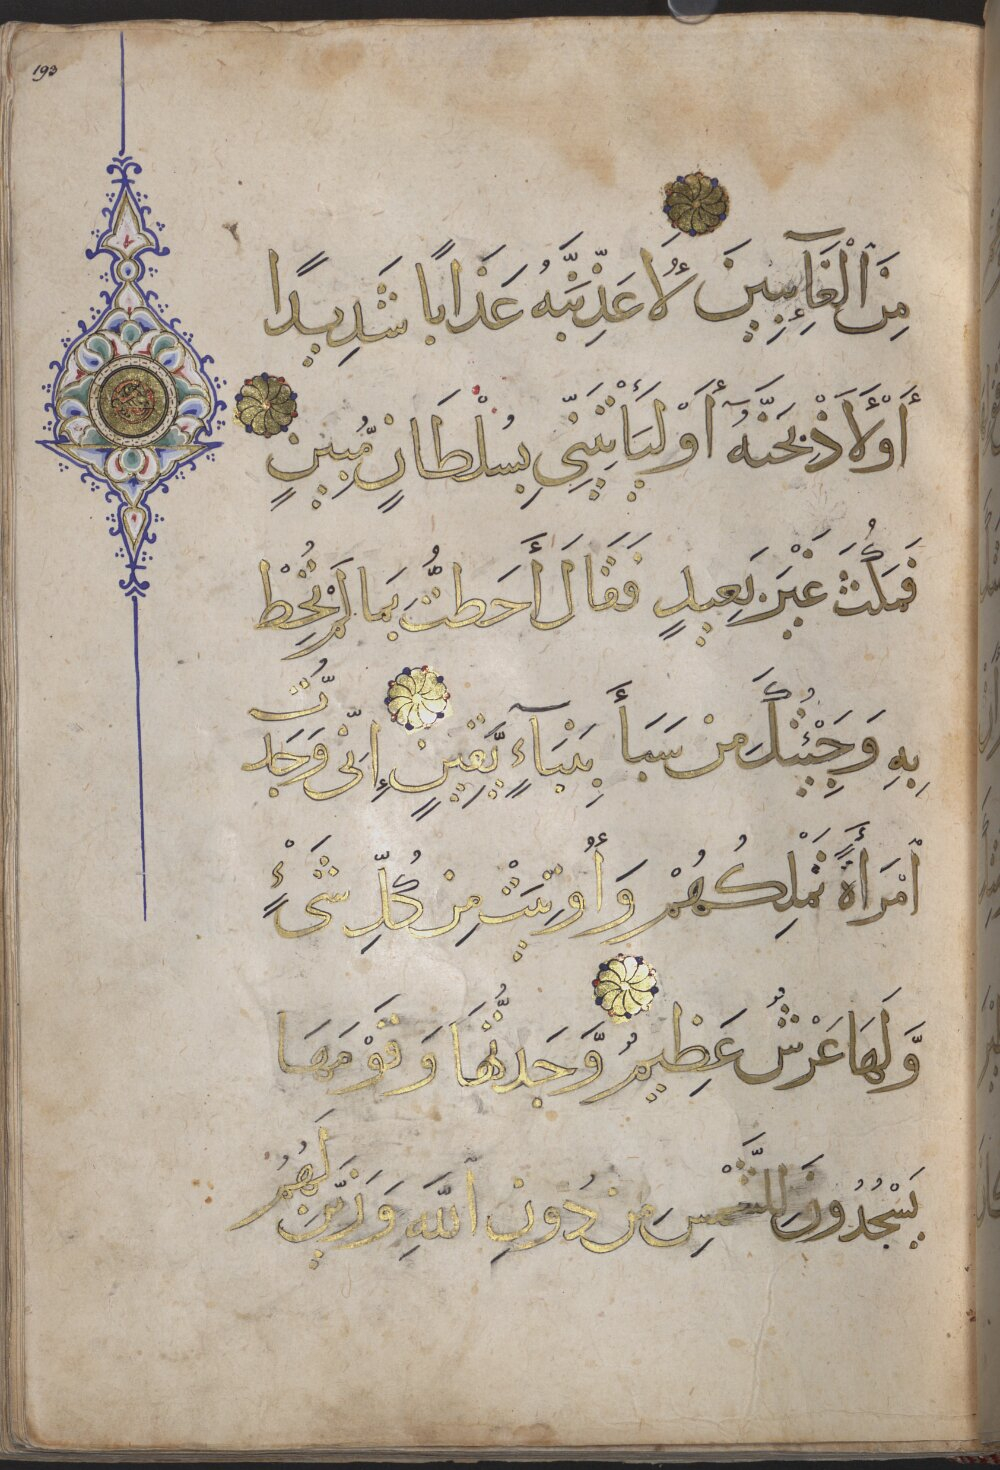 193
مِنَ ٱلْغَآئِبِينَ لَأُعَذِّبَنَّهُ عَذَابًا شَدِيدًا
أَوْ لَأَاذْبَحَنَّهُ أَوْ لَيَأْتِيَنِّى بِسُلْطَانٍ مُّبِينٍ
فَمَكُثَ غَيْرَ بَعِيدٍ فَقَالَ أَحَطتُّ بِمَا لَمْ تُحِطْ
بِهِ وَجِئْتُكَ مِنْ سَبَأٍ بِنَبَإٍ يَّقِينٍ إِنِّى وَجَدتُّ
ٱمْرَأَةً تَمْلِكُهُمْ وَأُوتِيَتْ مِنْ كُلِّ شَىْءٍ
وَّلَهَا عَرْشٌ عَظِيمٌ وَّجَدتُّهَا وَقَوْمَهَا
يَسْجُدُونَ لِلشَّمْسِ مِنْ دُونِ ٱللَّهِ وَزَيَّنَ لَهُمُ